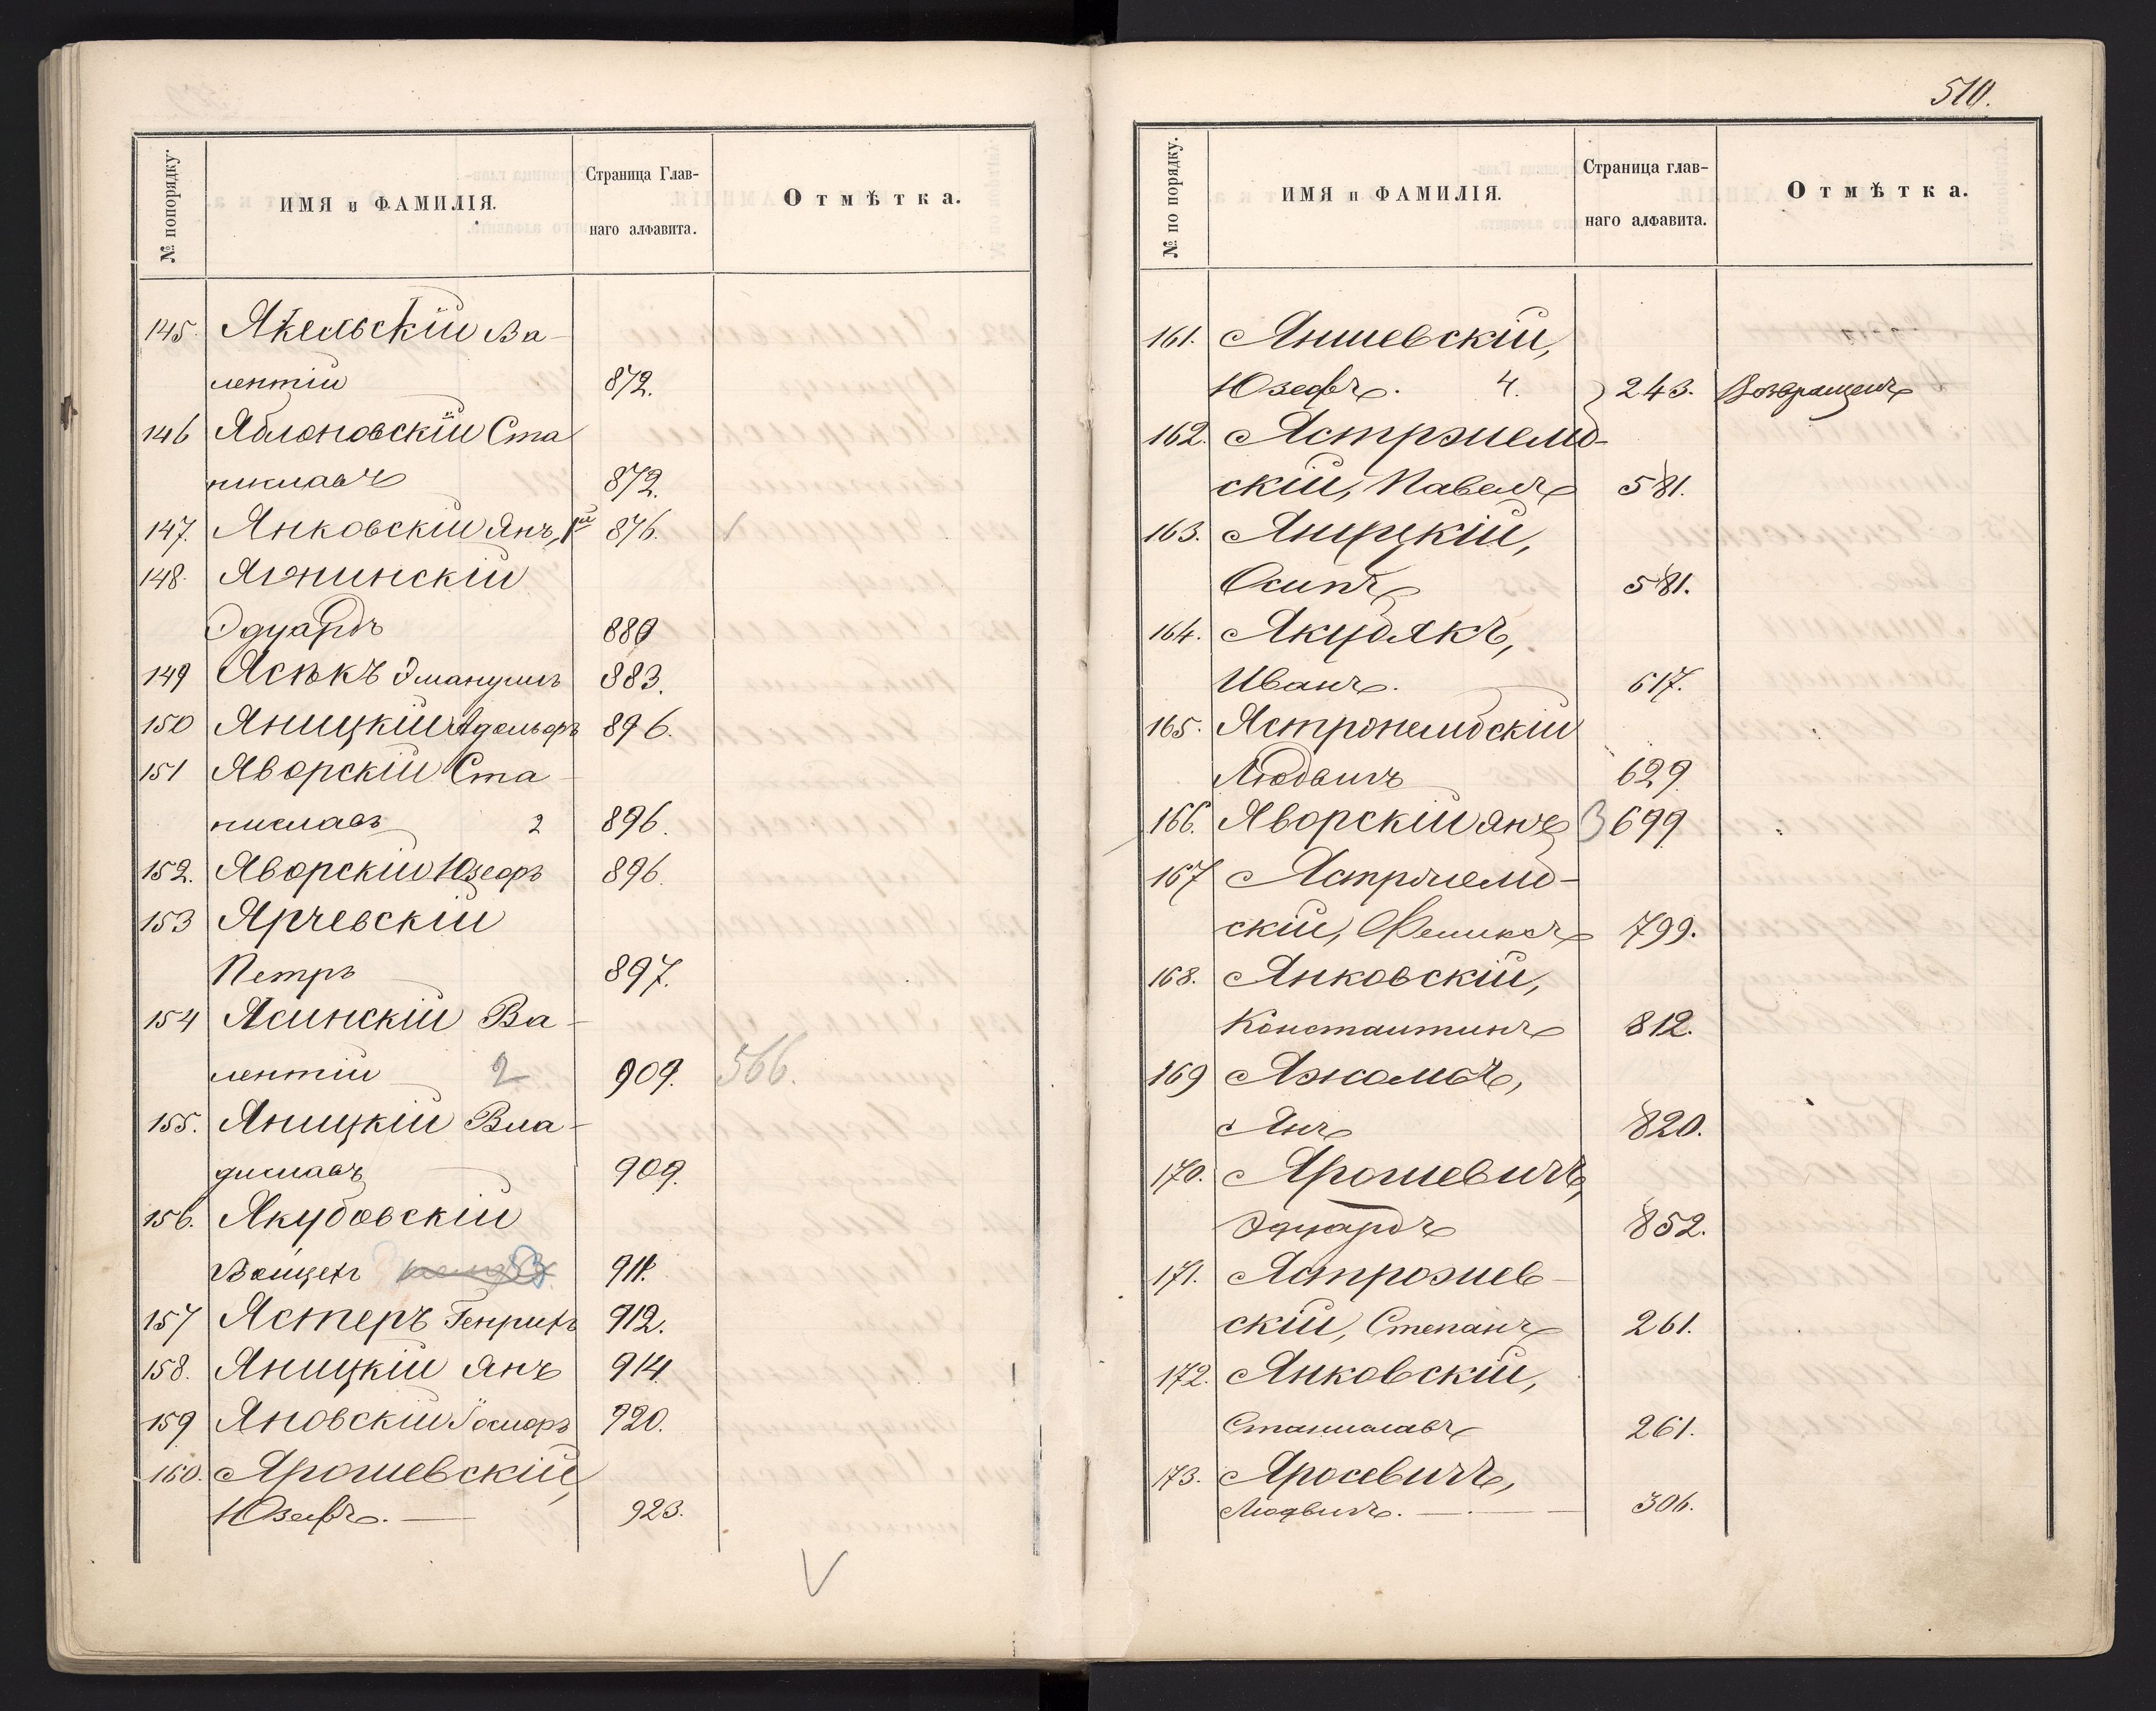 № попорядку.
ИМЯ и ФАМИЛІЯ.
Страница Глав-
наго алфавита.
Отмѣтка.
145. Якельскій Ва-
лентій 872.
146 Яблоновскій Ста
ниславъ 872.
147. Янковскій Янъ, 1й 876.
148. Ягнинскій
Эдуардъ 880
149 Ясѣкъ Эмануилъ 883.
150 Яницкій Адольфъ 896.
151 Яворскій Ста
ниславъ 2 896.
152. Яворскій Юзефъ 896.
153 Ярчевскій
Петръ 897.
154 Ясинскій Ва-
лентій 2 909. 566.
155. Яницкій Вла-
диславъ 909.
156. Якубовскій
Войцехъ 911.
157 Ястеръ Генрихъ 912.
158. Яницкій Янъ 914
159 Яновскій Іосифъ 920.
160. Ярошевскій,
Юзефъ. — 923.
510.
№ по порядку.
ИМЯ и ФАМИЛІЯ.
Страница глав-
наго алфавита.
Отмѣтка.
161. Янишевскій,
Юзефъ. 4. 243. Возвращенъ
162. Ястржемб-
скій, Павелъ 581.
163. Яницкій,
Осипъ 581.
164. Якубякъ,
Иванъ. 617.
165. Ястржембскій
Людвигъ 629
166. Яворскій Янъ 3 699
167 Ястржемб-
скій, Феликсъ 799.
168. Янковскій,
Константинъ 812.
169
Янъ 820.
170. Ярошевичъ,
Эдуардъ 852.
171.
скій, Степанъ 261.
172. Янковскій,
Станиславъ 261.
173. Яросевичъ,
Людвигъ. — 306.